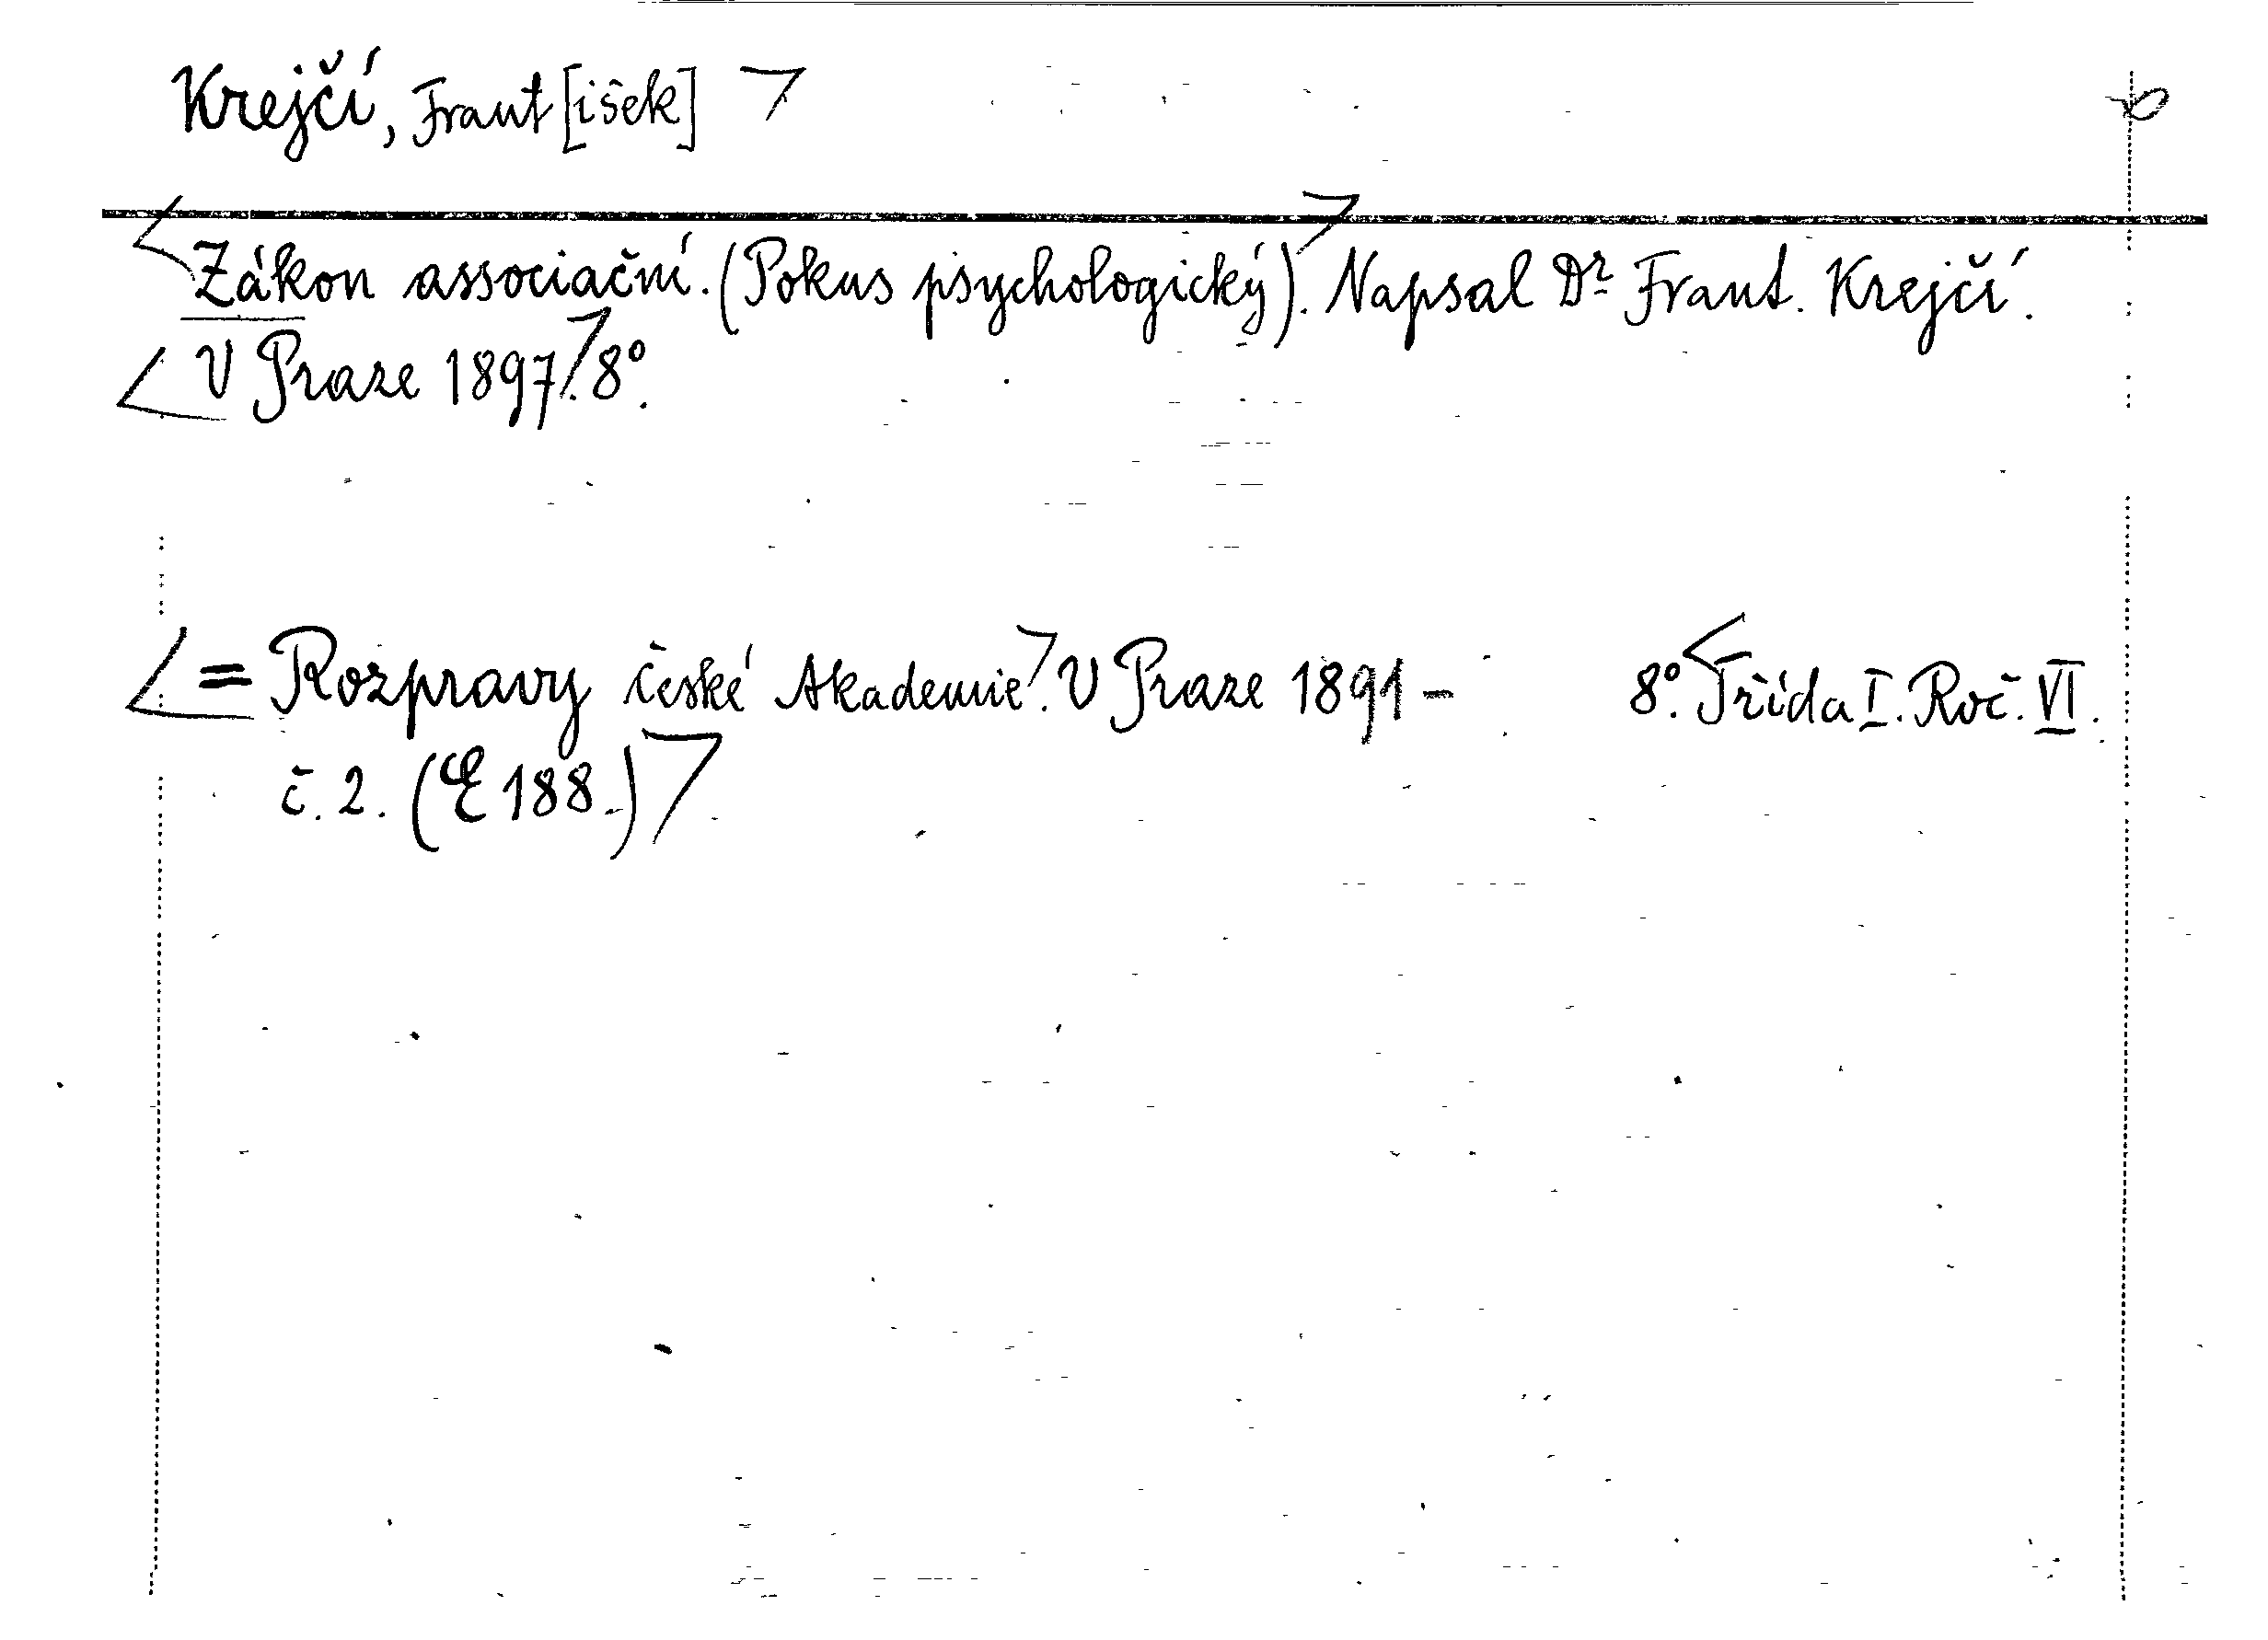 Krejčí, Frant[išek]
Zákon associační. (Pokus psychologický). Napsal Dr Frant. Krejčí.
V Praze 1897. 8°.
= Rozpravy České Akademie. V Praze 1891 - 8°. Třída I. Roč. VI.
č. 2. (E 188.)